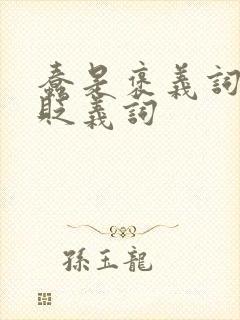 蠢是褒義詞
貶義詞
孫玉龍